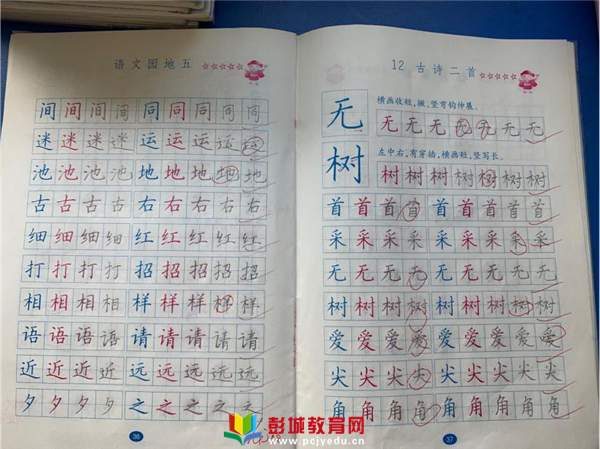 语文园地五
间间间间同同同同
迷迷迷迷运运运运
池池池池地地地地
古古古古右右右右
细细细细红红红红
打打打打招招招招
相相相相样样样样
语语语语请请请请
近近近近远远远远
夕夕夕夕之之之之
36
12 古诗二首
无
横画收短,撇、竖弯钩伸展。
无无无无无无无
树
左中右,有穿插,横画短,竖写长。
树树树树树树树
首首首首首首首首
采采采采采采采采
无无无无无无无无
树树树树树树树树
爱爱爱爱爱爱爱爱
尖尖尖尖尖尖尖尖
角角角角角角角角
37
彭城教育网
www.pcjyedu.cn